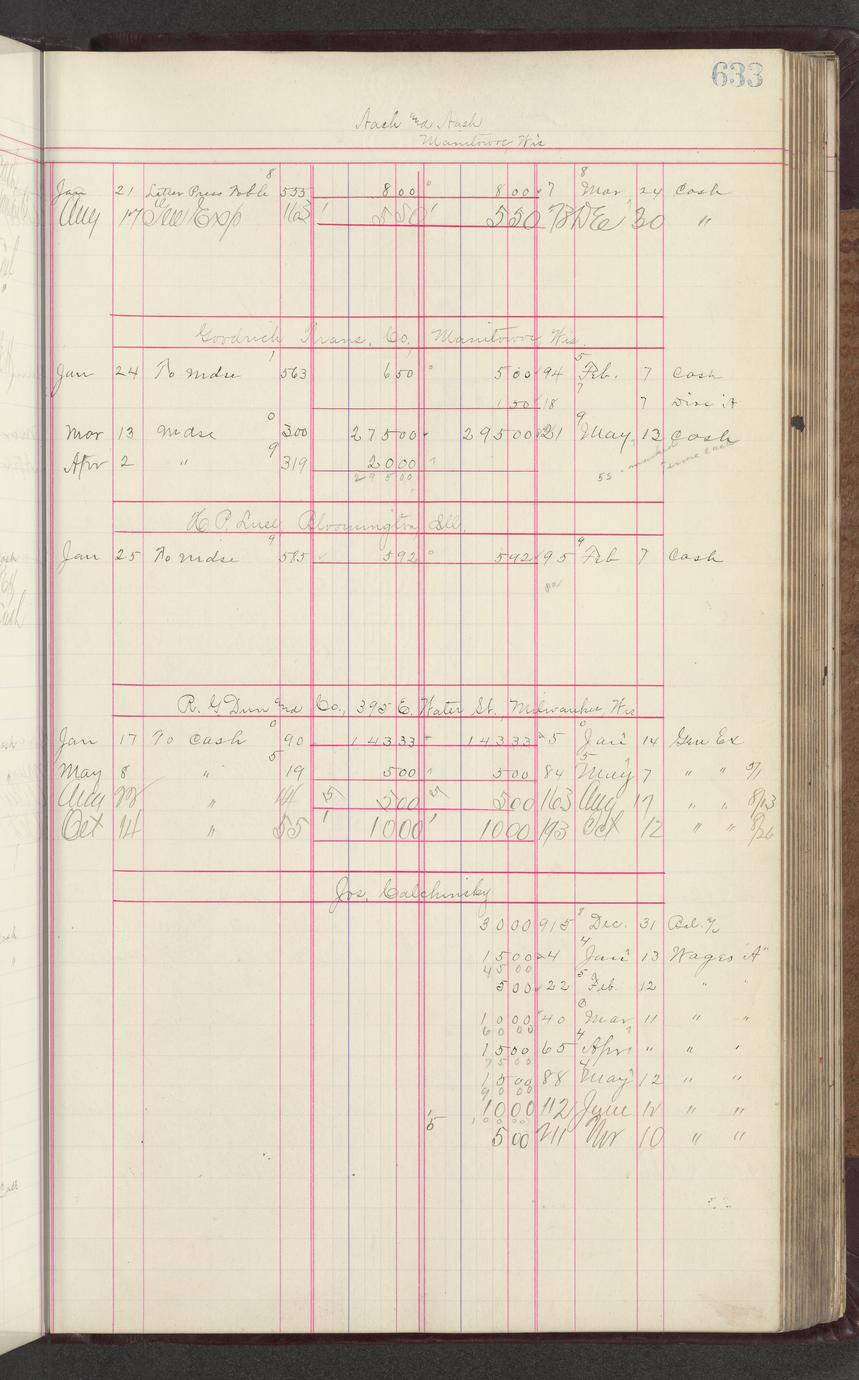 633
Nash and Nash
Manitowoc, Wis
Jan 21 Letter Press Table 8 555 800 800 7 8 Mar 24 Cash
Aug 17 Gen Exp 163 550 550 30 "
Goodrich Trans. Co. Manitowoc Wis.
Jan 24 To mdse 1 563 650 500 94 5 Feb. 7 Cash
150 18 7 7 Disc "A"
Mar 13 mdse 0 300 27500 29500 121 9 May 13 Cash
Apr 2 " 9 319 2000
29500
H. P. Luse, Bloomington, Ill,
Jan 25 To mdse 9 585 592 592 95 9 Feb 7 Cash
R. G Dun and Co., 395 E. Water St., Milwaukee Wis
Jan 17 To Cash 0 90 14333 14333 5 0 Jan 14 Gen Ex
May 8 " 5 19 500 500 84 5 May 7 " " 5/1
Aug 28 " 44 5 500 5 500 163 Aug 17 " " 8/13
Oct 14 " 55 1 1000 1 1000 193 Oct 12 " " 8/26
Jos. Calchinsky
3000 915 8 Dec. 31 Bal.
1500 4 4 Jan 13 Wages "A"
4500
500 22 5 Feb. 12 " "
1000 40 0 Mar 11 " "
6000
1500 65 4 Apr " " "
7500
1500 88 4 May 12 " "
9000
1000 112 June 12 " "
10000
5 500 211 Nov 10 " "